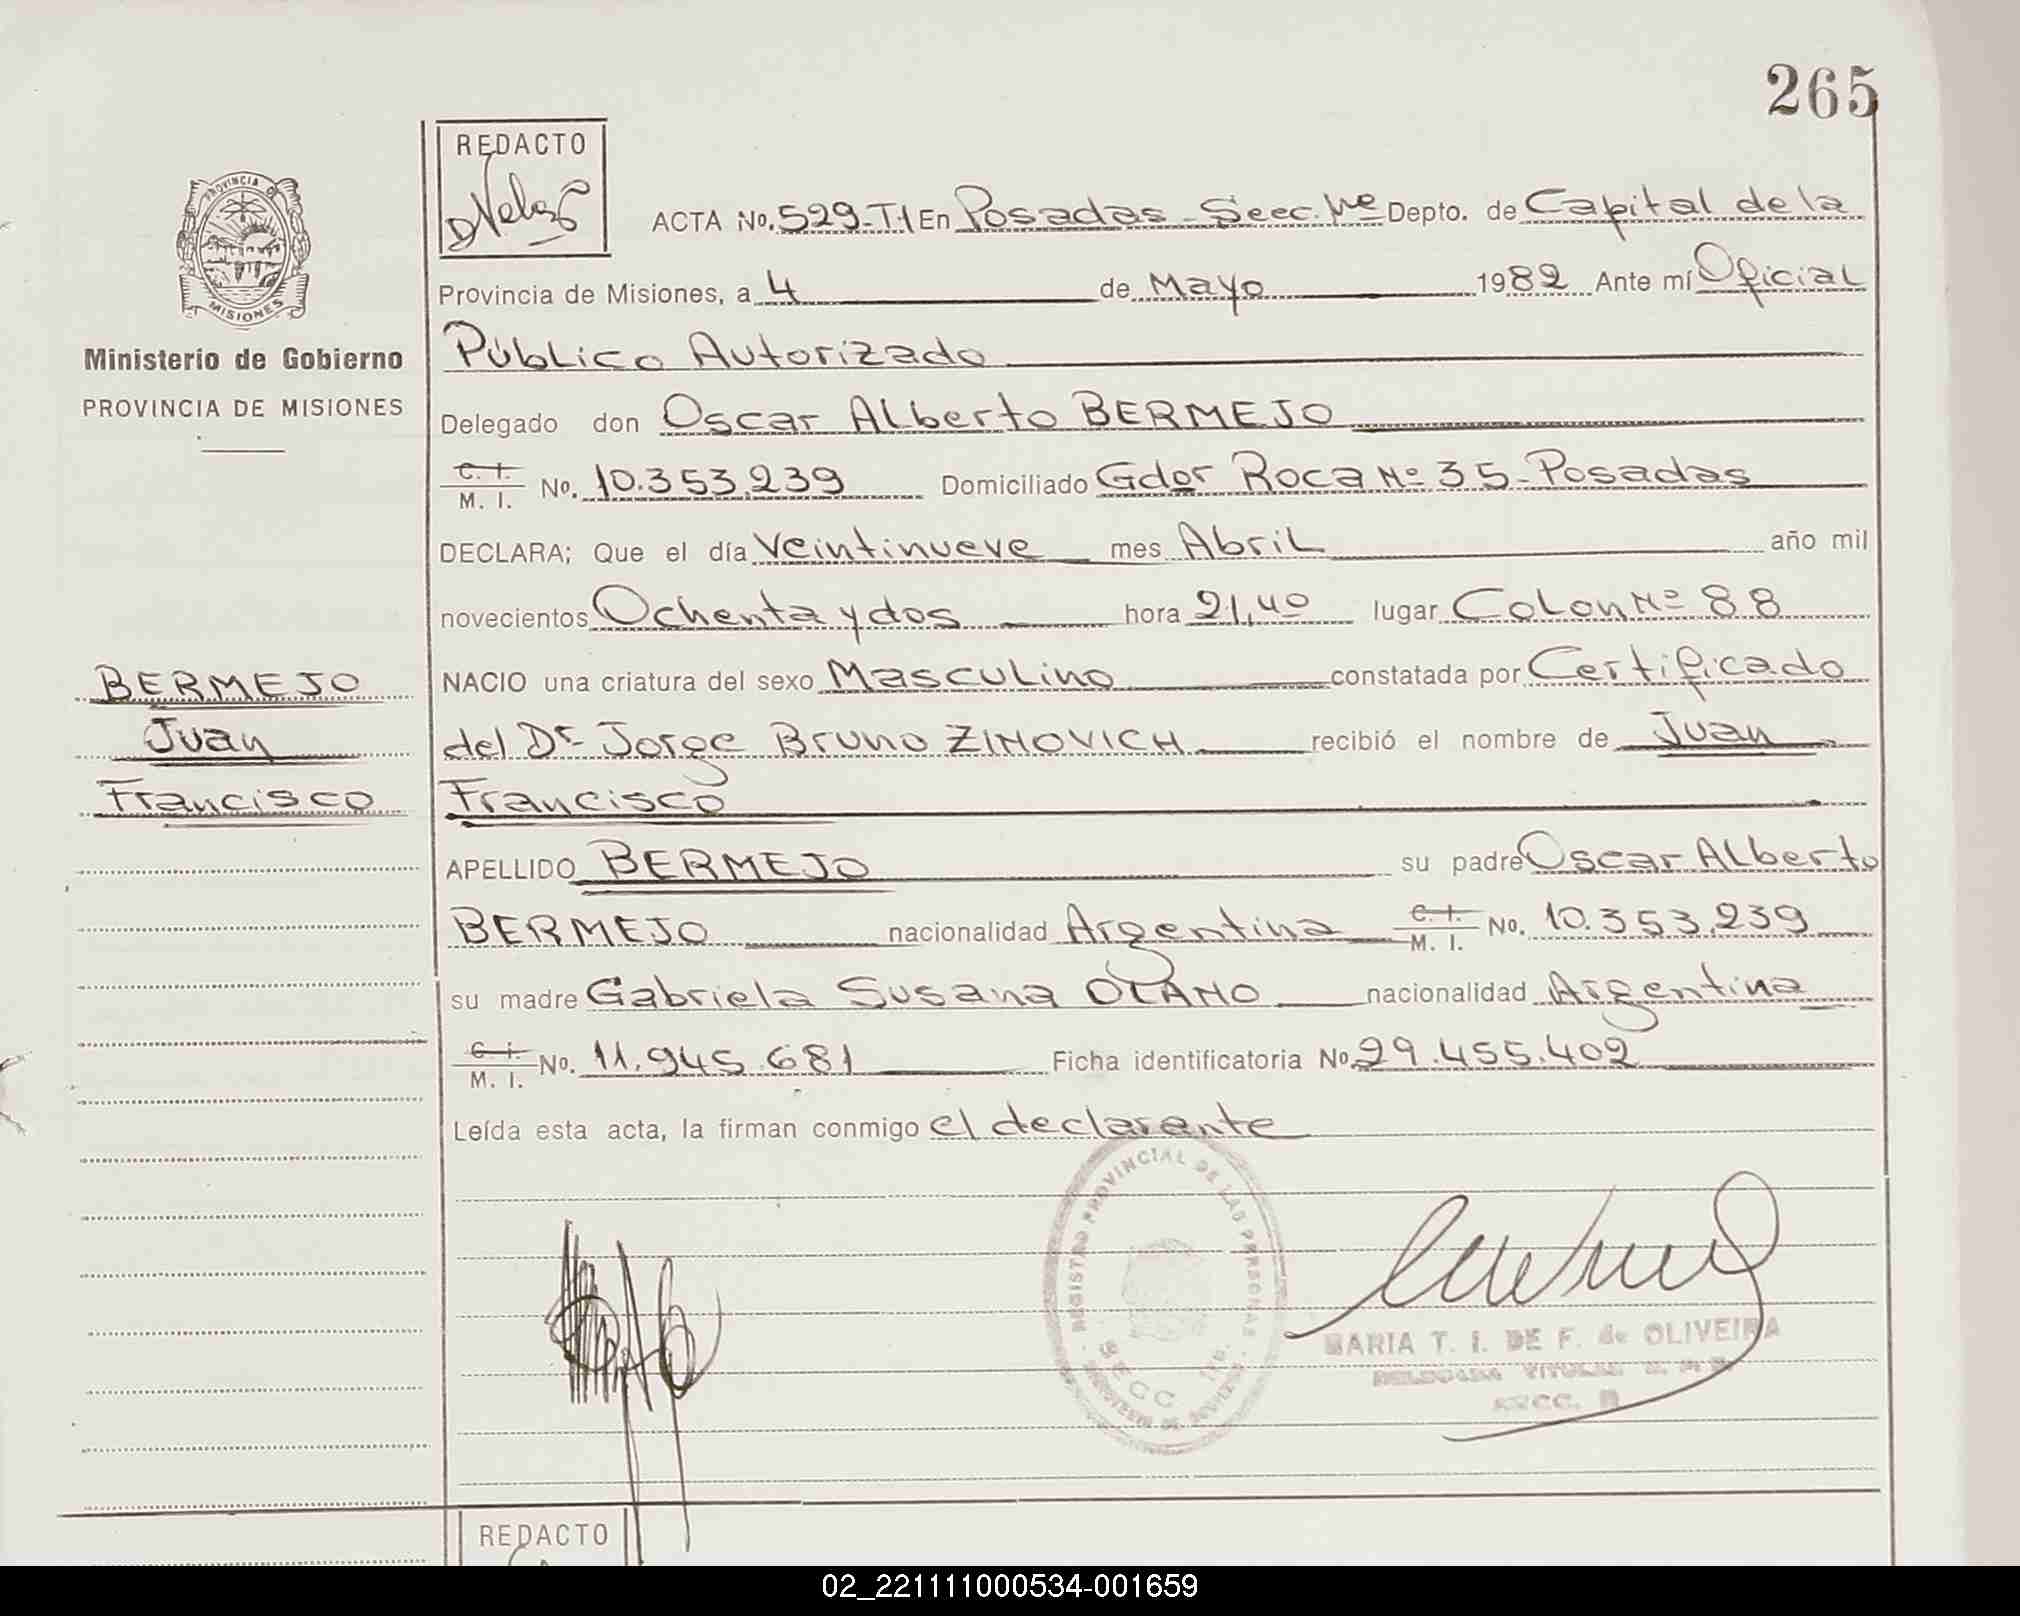 265
REDACTO
PROVINCIA DE
MISIONES
Ministerio de Gobierno
PROVINCIA DE MISIONES
ACTA No. 529-T1 En Posadas - Secc. 1ra Depto. de Capital de la
Provincia de Misiones, a 4 de Mayo 1982 Ante mí Oficial
Público Autorizado
Delegado don Oscar Alberto BERMEJO
C. I. / M. I. No. 10.353.239 Domiciliado Gdor Roca Nº 35 - Posadas
DECLARA; Que el día Veintinueve mes Abril año mil
novecientos Ochenta y dos hora 21,40 lugar Colon Nº 88
BERMEJO
Juan
Francisco
NACIO una criatura del sexo Masculino constatada por Certificado
del Dr. Jorge Bruno ZINOVICH recibió el nombre de Juan
Francisco
APELLIDO BERMEJO su padre Oscar Alberto
BERMEJO nacionalidad Argentina C. I. / M. I. No. 10.353.239
su madre Gabriela Susana OLANO nacionalidad Argentina
C. I. / M. I. No. 11.945.681 Ficha identificatoria No. 29.455.402
Leída esta acta, la firman conmigo el declarante
REGISTRO PROVINCIAL DE LAS PERSONAS
SECC 1ra.
MARIA T. I. DE F. de OLIVEIRA
SECC.
REDACTO
02_221111000534-001659